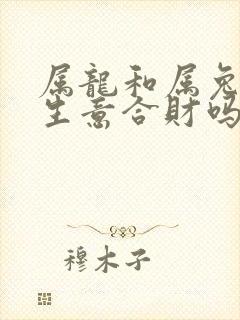 属龍和属兔
生意合財吗
穆木子